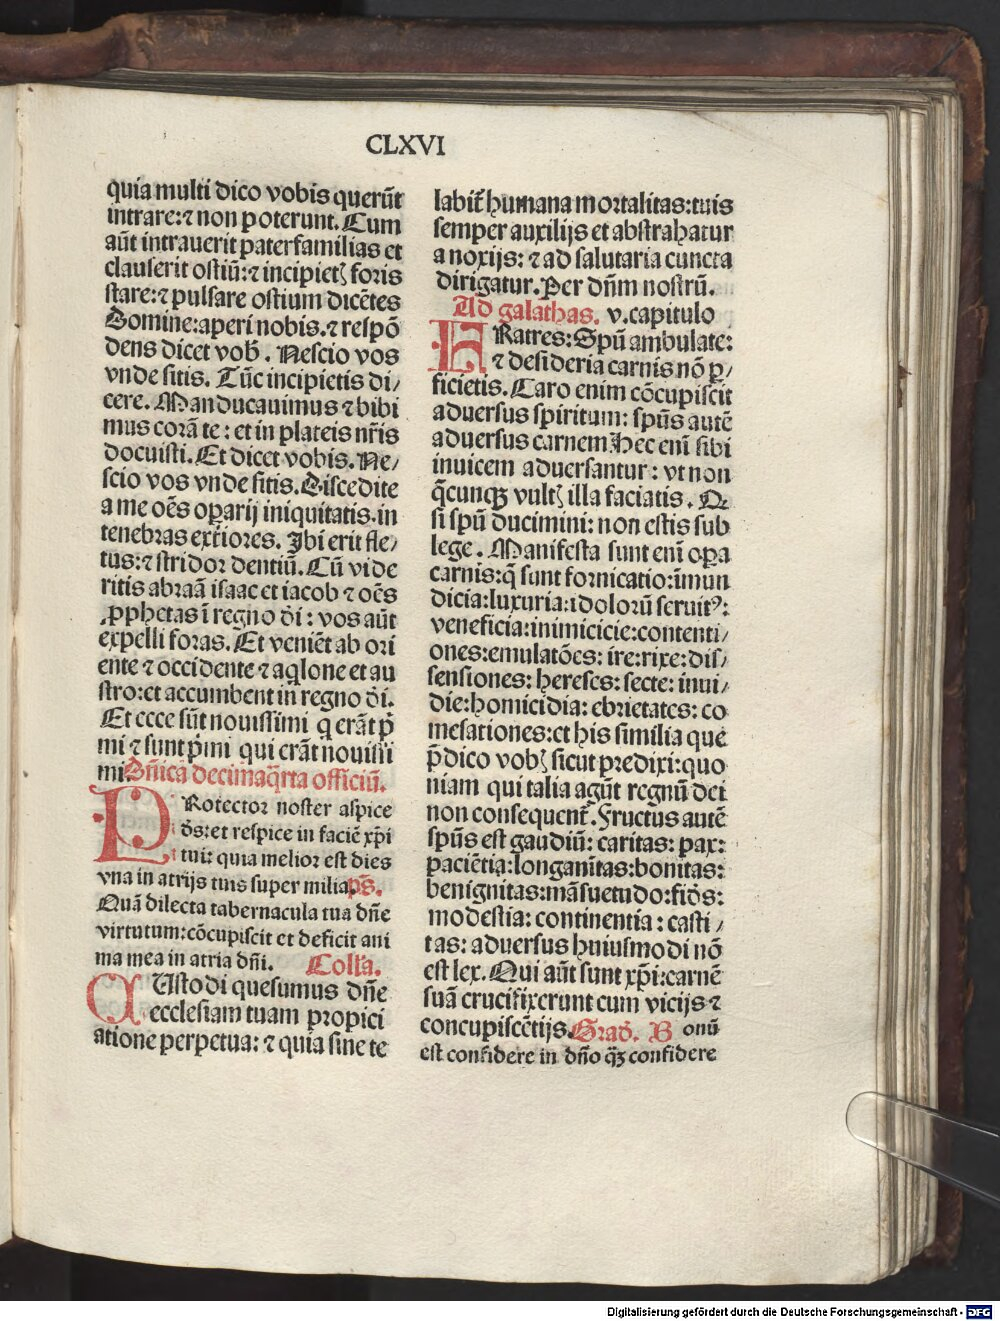 CLXVI
quia multi dico vobis querūt
intrare:⁊ non poterunt. Cum
aūt intrauerit paterfamilias et
clauserit ostiū:⁊ incipietꝫ foris
stare:⁊ pulsare ostium dicētes
Domine:aperi nobis.⁊ respō
dens dicet vob̄. Nescio vos
vnde sitis. Tūc incipietis di/
cere. Manducauimus ⁊ bibi
mus corā te: et in plateis nr̄is
docuisti. Et dicet vobis. Ne/
scio vos vnde sitis. Discedite
a me oēs oꝑarij iniquitatis.in
tenebras ext̄iores. Ibi erit fle/
tus:⁊ stridor dentiū. Cū vide
ritis abraā isaac et iacob ⁊ oēs
ꝓphetas ī regno dī: vos aūt
expelli foras. Et veniēt ab ori
ente ⁊ occidente ⁊ aq̄lone et au
stro:et accumbent in regno dī.
Et ecce sūt nouissimi q erāt p̄
mi ⁊ sunt p̄mi qui erāt nouissi
mi. Dn̄ica decimaq̄rta officiū.
PRotector noster aspice
ds̄:et respice in faciē xp̄i
tui: quia melior est dies
vna in atrijs tuis super milia. ps̄.
Quā dilecta tabernacula tua dn̄e
virtutum:cōcupiscit et deficit ani
ma mea in atria dn̄i. Coll̄a.
CUstodi quesumus dn̄e
ecclesiam tuam propici
atione perpetua: ⁊ quia sine te
labit̄ humana mortalitas:tuis
semper auxilijs et abstrahatur
a noxijs: ⁊ ad salutaria cuncta
dirigatur. Per dn̄m nostrū.
Ad galathas. v.capitulo
FRatres: Spū ambulate:
⁊ desideria carnis nō ꝑ/
ficietis. Caro enim cōcupiscit
aduersus spiritum: spūs autē
aduersus carnem Hec enī sibi
inuicem aduersantur: vt non
q̄cunqꝫ vultꝫ illa faciatis. Q
si spū ducimini: non estis sub
lege. Manifesta sunt enī oꝑa
carnis:q̄ sunt fornicatio:īmun
dicia:luxuria:idolorū seruitꝰ:
veneficia:inimicicie:contenti/
ones:emulatōes: ire:rixe:dis/
sensiones: hereses: secte: inui/
die:homicidia: ebrietates: co
mesationes:et his similia que
p̄dico vobꝫ sicut predixi:quo
niam qui talia agūt regnū dei
non consequent̄. Fructus autē
spūs est gaudiū: caritas: pax:
paciētia:longanītas:bonitas:
benignitas:māsuetudo:fids̄:
modestia: continentia: casti/
tas: aduersus huiusmodi nō
est lex. Qui aūt sunt xp̄i:carnē
suā crucifixerunt cum vicijs ⁊
concupiscētijs. Grad̄. B onū
est confidere in dn̄o q̄ꝫ confidere
Digitalisierung gefördert durch die Deutsche Forschungsgemeinschaft - DFG